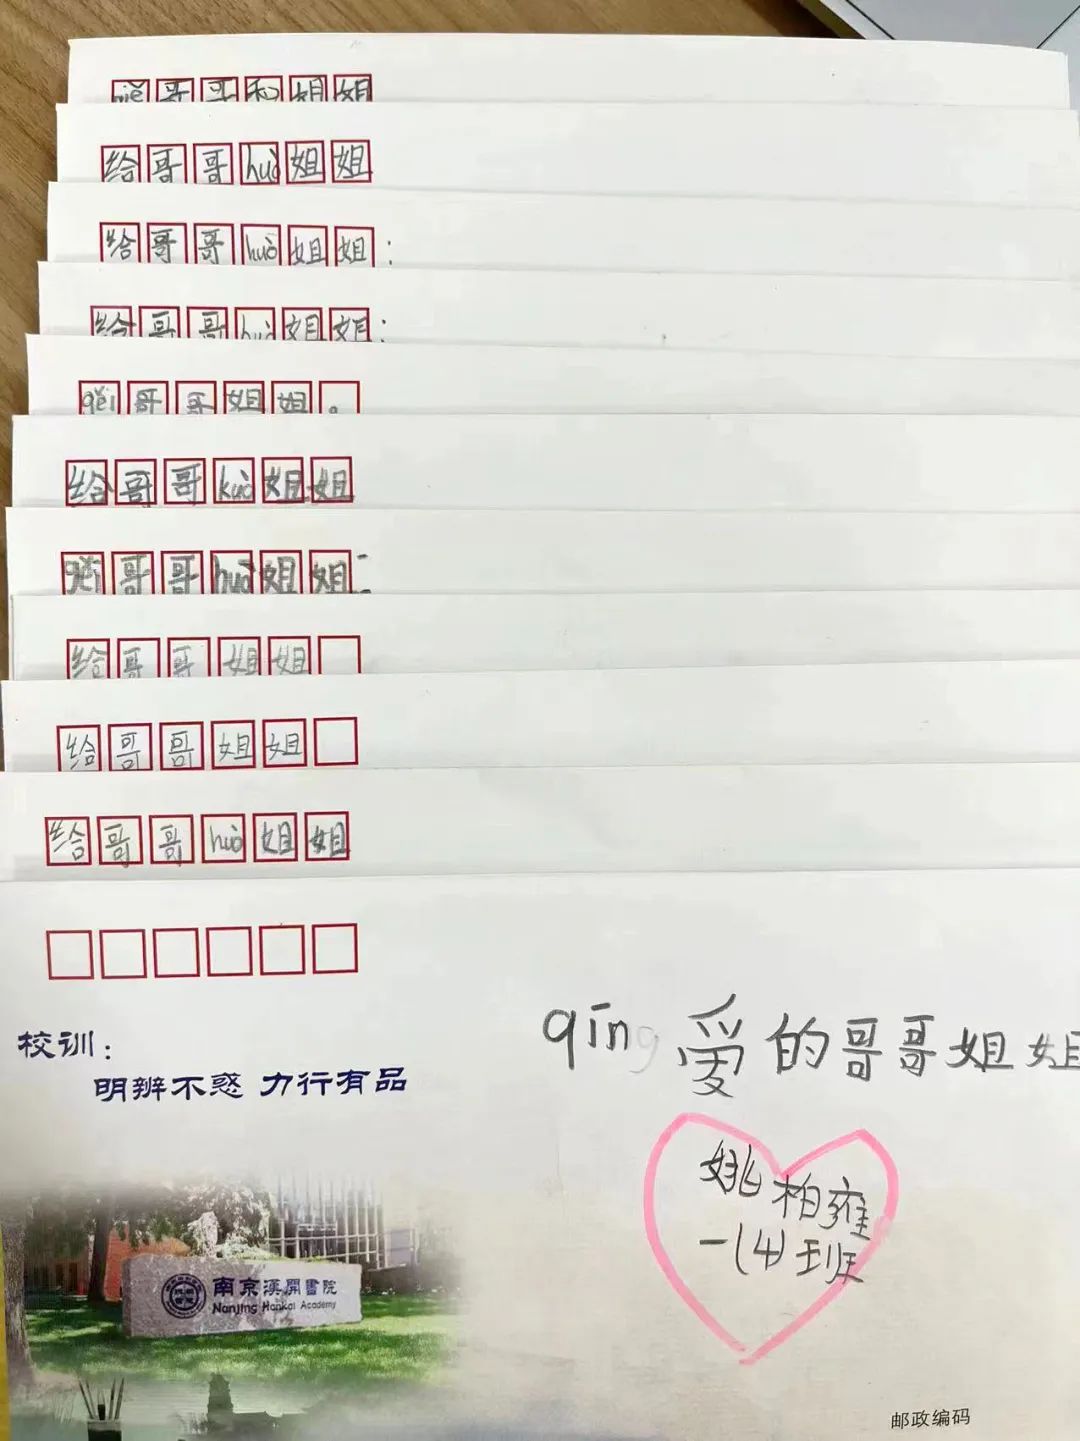 哥哥和姐姐
给哥哥huò姐姐
给哥哥huò姐姐：
给哥哥huò姐姐：
gěi哥哥姐姐。
给哥哥kuò姐姐
gěi哥哥huò姐姐：
给哥哥姐姐
给哥哥姐姐
给哥哥huò姐姐
校训：
明辨不惑 力行有品
qīng爱的哥哥姐姐
姚柏雍
一(4)班
南京漢開書院
Nanjing Hankai Academy
邮政编码